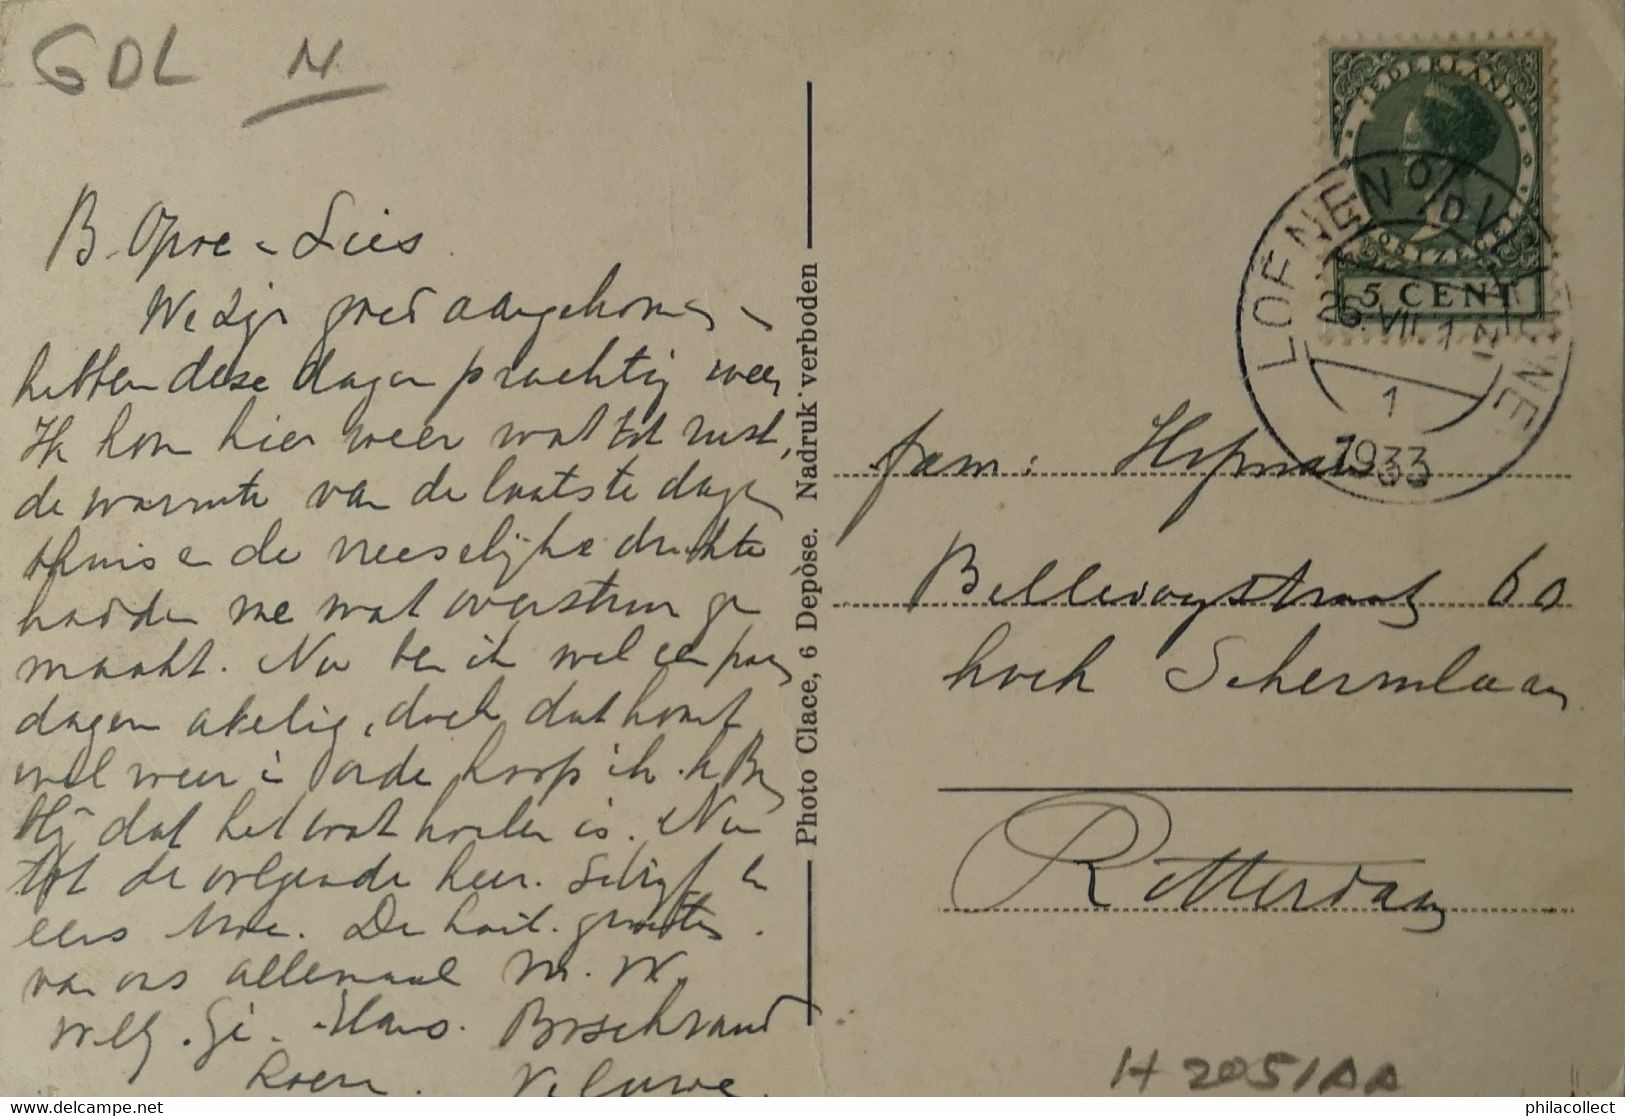 GDL N
B. Opoe en Lies.
We zijn goed aangekomen en
hebben deze dagen prachtig weer
Ik kon hier weer wat tot rust,
de warmte van de laatste dagen
thuis en de vreeselijke drukte
hadden me wat overstuur ge
maakt. Nu ben ik wel een paar
dagen akelig, doch dat komt
wel weer in orde hoop ik.
blij dat het wat koeler is. Nu
tot de volgende keer. Schrijf en
eens hoe. De hart. groeten.
van ons allemaal M. W.
Willy. Gi. Hans. Boschrand
Koen. Veluwe.
Photo Clace, 6 Depose. Nadruk verboden
NEDERLAND
POSTZEGEL
5 CENT
LOENEN OP DE VELUWE
26.VII.1
1
1933
fam: Hofman
Bellevoystraat 60
hoek Schermlaan
Rotterdam
H 2051AA
philacollect